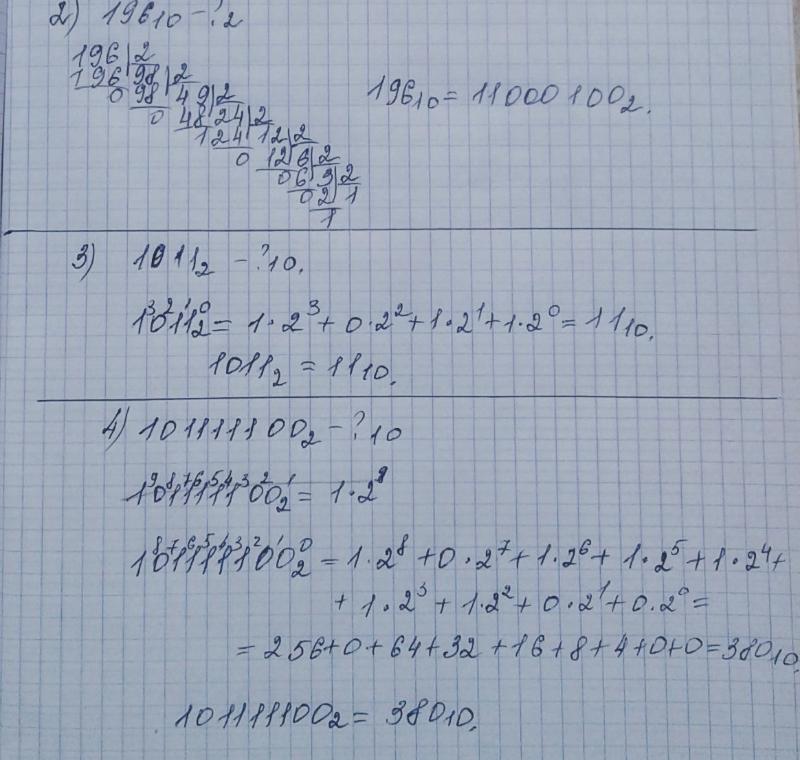 2) 196₁₀ - ?₂
196 | 2
196 98 | 2
0 98 49 | 2
0 48 24 | 2
1 24 12 | 2
0 12 6 | 2
0 6 3 | 2
0 2 1
1
196₁₀ = 11000100₂.
3) 1011₂ - ?₁₀.
1³0²1¹1⁰₂ = 1·2³ + 0·2² + 1·2¹ + 1·2⁰ = 11₁₀.
1011₂ = 11₁₀.
4) 101111100₂ - ?₁₀
1⁹0⁸1⁷1⁶1⁵1⁴1³0²0¹₂ = 1·2⁹
1⁸0⁷1⁶1⁵1⁴1³1²0¹0⁰₂ = 1·2⁸ + 0·2⁷ + 1·2⁶ + 1·2⁵ + 1·2⁴ +
+ 1·2³ + 1·2² + 0·2¹ + 0·2⁰ =
= 256+0+64+32+16+8+4+0+0=380₁₀.
101111100₂ = 380₁₀.